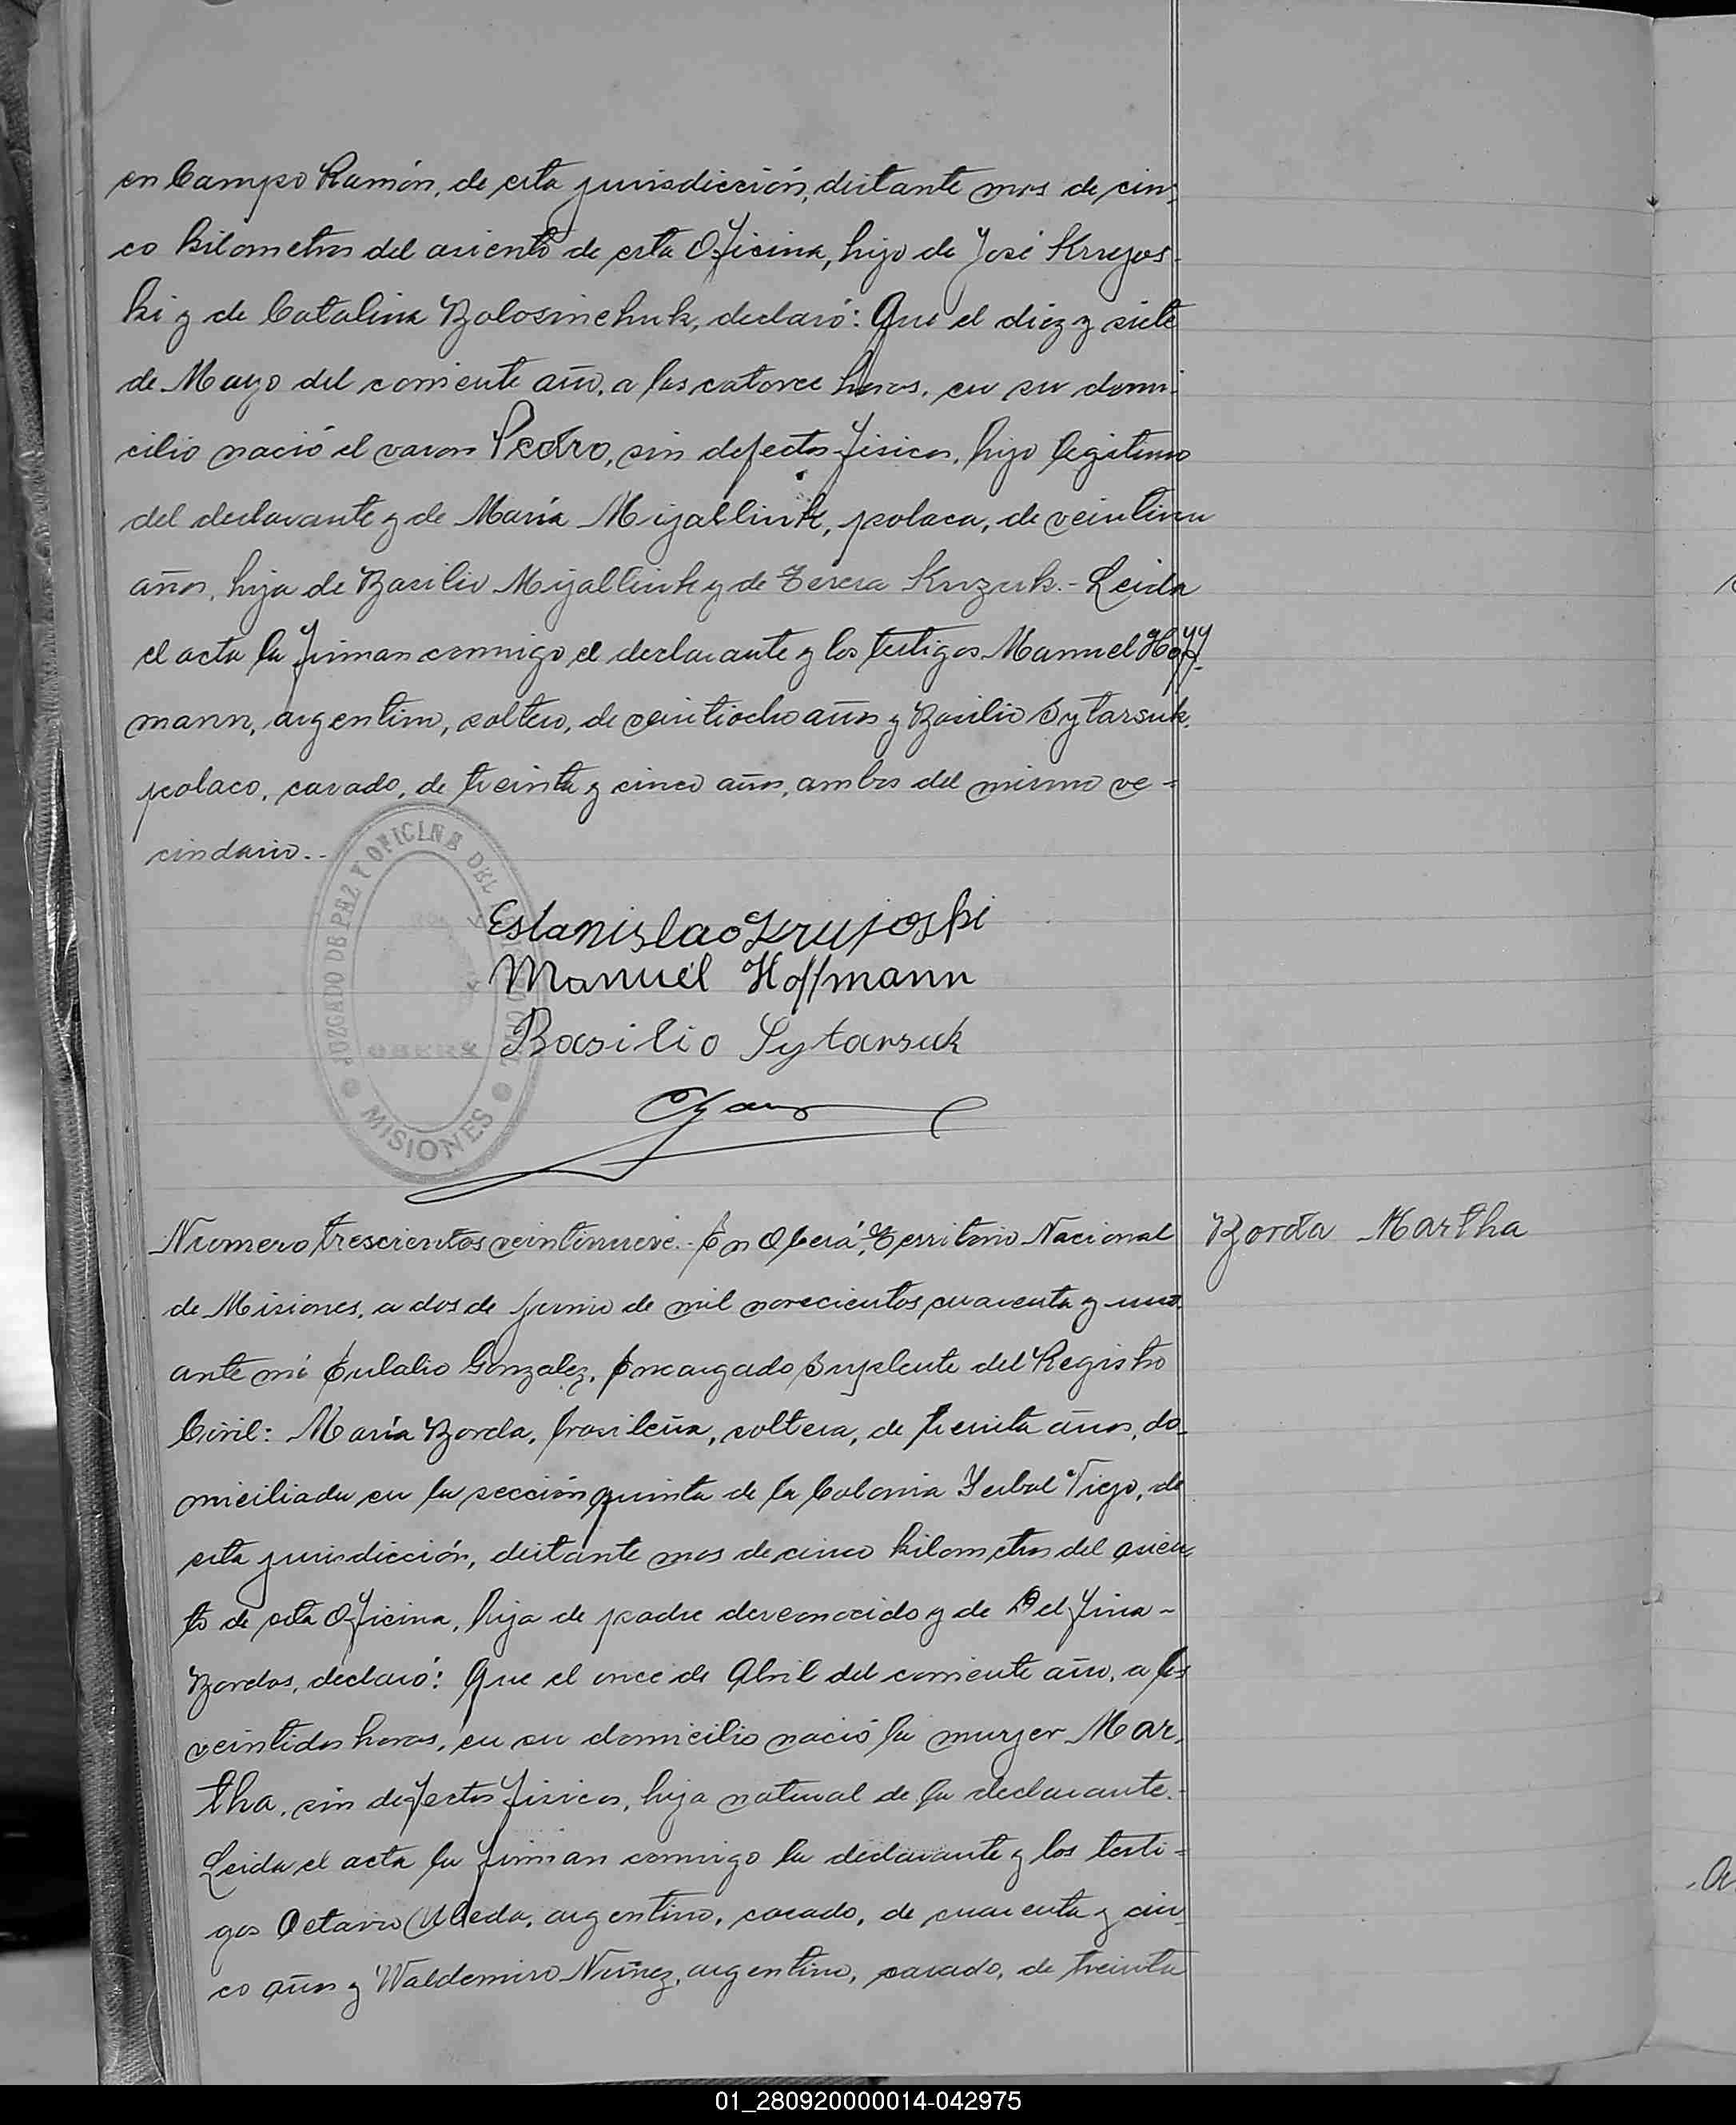 en Campo Ramón, de esta jurisdicción, distante mas de cin-
co kilometros del asiento de esta Oficina, hijo de José Krujos-
ki y de Catalina Bolosinchuk, declaró: Que el diez y siete
de Mayo del corriente año, a las catorce horas, en su domi-
cilio nació el varon Pedro, sin defectos fisicos, hijo legitimo
del declarante y de María Mijalliuk, polaca, de veintiun
años, hija de Basilio Mijalliuk y de Teresa Kuzuk.- Leida
el acta la firman conmigo el declarante y los testigos Manuel Hoff-
mann, argentino, soltero, de veintiocho años y Basilio Sytarsuk,
polaco, casado, de treinta y cinco años, ambos del mismo ve-
cindario.-
JUZGADO DE PAZ Y OFICINA DEL
OBERA
MISIONES
Estanislao Krujoski
Manuel Hoffmann
Basilio Sytarsuk
Numero trescientos veintinueve.- En Oberá, Territorio Nacional
Borda Martha
de Misiones, a dos de Junio de mil novecientos cuarenta y uno,
ante mí Eulalio Gonzalez, Encargado Suplente del Registro
Civil: María Borda, brasileña, soltera, de treinta años, do-
miciliada en la sección quinta de la Colonia Yerbal Viejo, de
esta jurisdicción, distante mas de cinco kilometros del asien-
to de esta Oficina, hija de padre desconocido y de Delfina-
Bordas, declaró: Que el once de Abril del corriente año, a las
veintidos horas, en su domicilio nació la mujer Mar-
tha, sin defectos fisicos, hija natural de la declarante.-
Leida el acta la firman conmigo la declarante y los testi-
gos Octavio Ubeda, argentino, casado, de cuarenta y cin-
co años y Waldemiro Nuñez, argentino, casado, de treinta
01_280920000014-042975